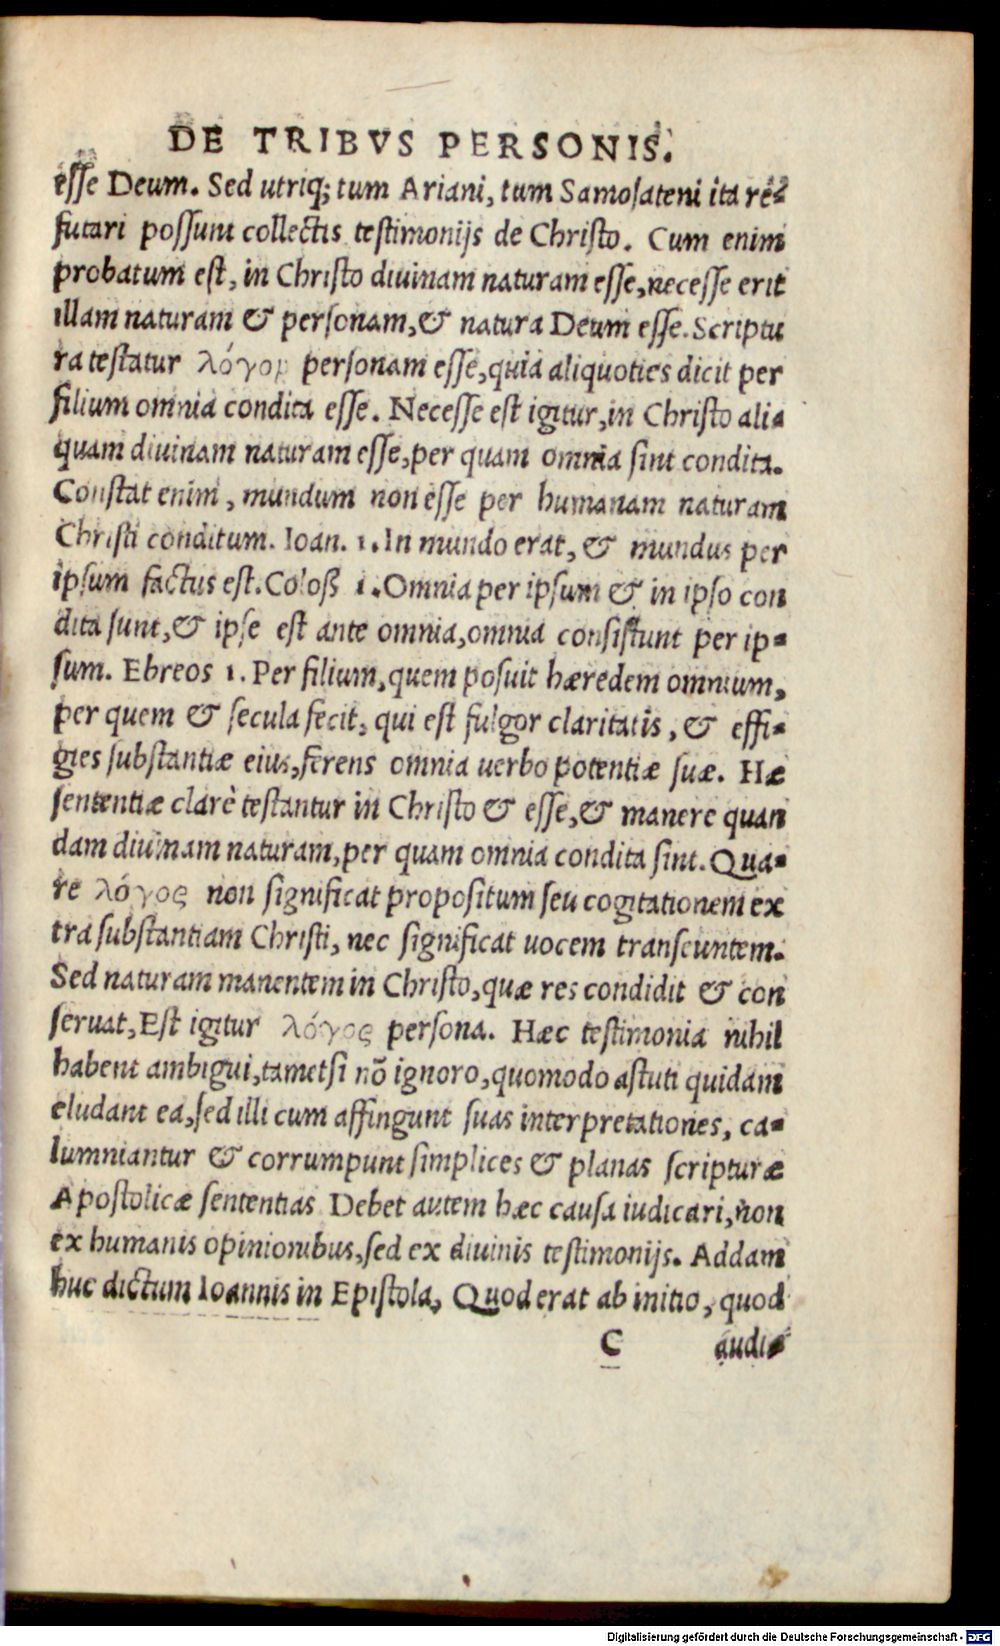 DE TRIBVS PERSONIS.
esse Deum. Sed utriq; tum Ariani, tum Samosateni ita re-
futari possunt collectis testimonijs de Christo. Cum enim
probatum est, in Christo diuinam naturam esse, necesse erit
illam naturam & personam, & natura Deum esse. Scriptu
ra testatur λόγον personam esse, quia aliquoties dicit per
filium omnia condita esse. Necesse est igitur, in Christo ali-
quam diuinam naturam esse, per quam omnia sint condita.
Constat enim, mundum non esse per humanam naturam
Christi conditum. Ioan. 1. In mundo erat, & mundus per
ipsum factus est. Coloß 1. Omnia per ipsum & in ipso con
dita sunt, & ipse est ante omnia, omnia consistunt per ip-
sum. Ebreos 1. Per filium, quem posuit hæredem omnium,
per quem & secula fecit, qui est fulgor claritatis, & effi-
gies substantiæ eius, ferens omnia uerbo potentiæ suæ. Hæ
sententiæ clarè testantur in Christo & esse, & manere quan
dam diuinam naturam, per quam omnia condita sint. Qua-
re λόγος non significat propositum seu cogitationem ex
tra substantiam Christi, nec significat uocem transeuntem.
Sed naturam manentem in Christo, quæ res condidit & con
seruat, Est igitur λόγος persona. Hæc testimonia nihil
habent ambigui, tametsi nõ ignoro, quomodo astuti quidam
eludant ea, sed illi cum affingunt suas interpretationes, ca-
lumniantur & corrumpunt simplices & planas scripturæ
Apostolicæ sententias. Debet autem hæc causa iudicari, non
ex humanis opinionibus, sed ex diuinis testimonijs. Addam
huc dictum Ioannis in Epistola, Quod erat ab initio, quod
C audi-
Digitalisierung gefördert durch die Deutsche Forschungsgemeinschaft - DFG